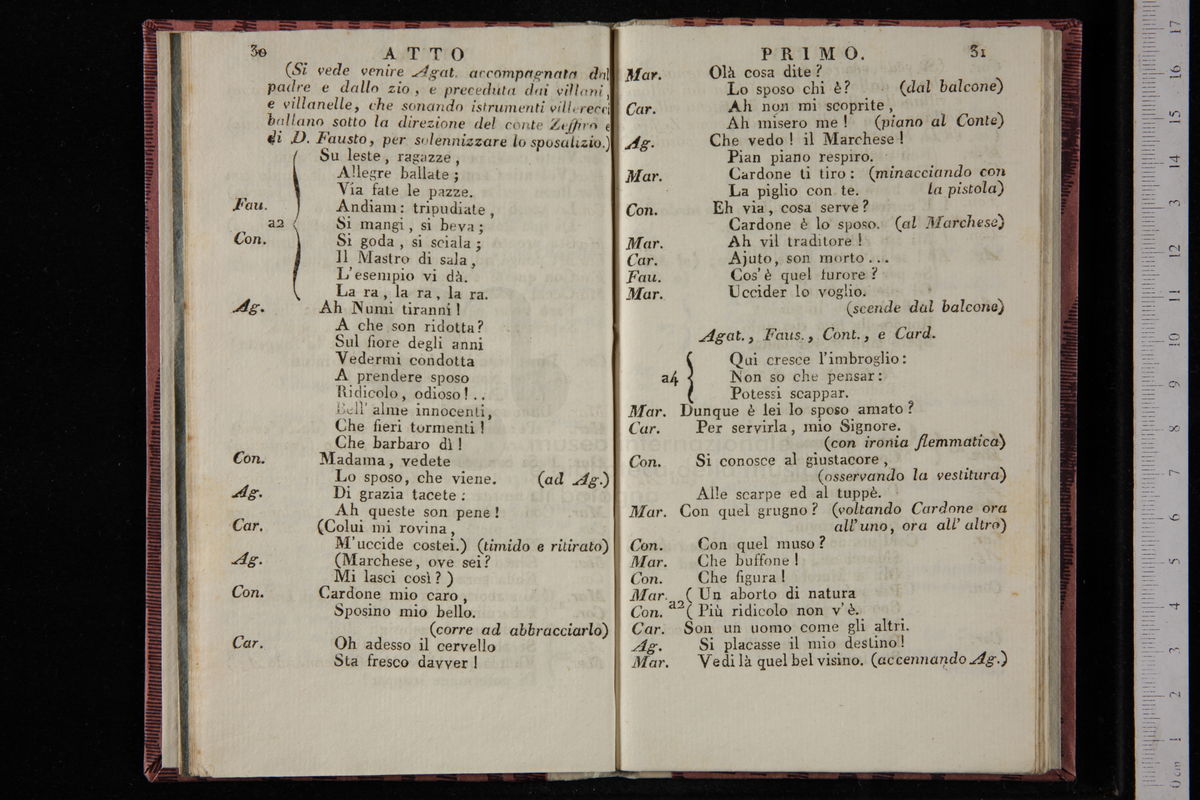 30 ATTO
(Si vede venire Agat. accompagnata dal
padre e dallo zio, e preceduta dai villani,
e villanelle, che sonando istrumenti villerecci
ballano sotto la direzione del conte Zeffiro e
di D. Fausto, per solennizzare lo sposalizio.)
Su leste, ragazze,
Allegre ballate;
Via fate le pazze.
Fau. Andiam: tripudiate,
a2 Si mangi, si beva;
Con. Si goda, si sciala;
Il Mastro di sala,
L'esempio vi dà.
La ra, la ra, la ra.
Ag. Ah Numi tiranni!
A che son ridotta?
Sul fiore degli anni
Vedermi condotta
A prendere sposo
Ridicolo, odioso!..
Bell' alme innocenti,
Che fieri tormenti!
Che barbaro dì!
Con. Madama, vedete
Lo sposo, che viene. (ad Ag.)
Ag. Di grazia tacete:
Ah queste son pene!
Car. (Colui mi rovina,
M'uccide costei.) (timido e ritirato)
Ag. (Marchese, ove sei?
Mi lasci così?)
Con. Cardone mio caro,
Sposino mio bello.
(corre ad abbracciarlo)
Car. Oh adesso il cervello
Sta fresco davver!
PRIMO. 31
Mar. Olà cosa dite?
Lo sposo chi è? (dal balcone)
Car. Ah non mi scoprite,
Ah misero me! (piano al Conte)
Ag. Che vedo! il Marchese!
Pian piano respiro.
Mar. Cardone ti tiro: (minacciando con
La piglio con te. la pistola)
Con. Eh via, cosa serve?
Cardone è lo sposo. (al Marchese)
Mar. Ah vil traditore!
Car. Ajuto, son morto...
Fau. Cos'è quel furore?
Mar. Uccider lo voglio.
(scende dal balcone)
Agat., Faus., Cont., e Card.
Qui cresce l'imbroglio:
a4 Non so che pensar:
Potessi scappar.
Mar. Dunque è lei lo sposo amato?
Car. Per servirla, mio Signore.
(con ironia flemmatica)
Con. Si conosce al giustacore,
(osservando la vestitura)
Alle scarpe ed al tuppè.
Mar. Con quel grugno? (voltando Cardone ora
all' uno, ora all' altro)
Con. Con quel muso?
Mar. Che buffone!
Con. Che figura!
Mar. ( Un aborto di natura
Con. a2 ( Più ridicolo non v'è.
Car. Son un uomo come gli altri.
Ag. Si placasse il mio destino!
Mar. Vedi là quel bel visino. (accennando Ag.)